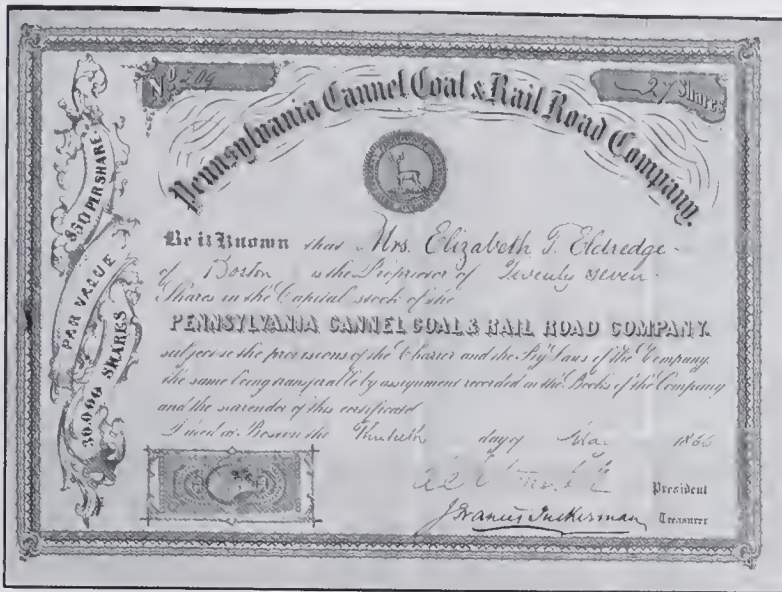 No 209
27 Shares
Pennsylvania Cannel Coal & Rail Road Company.
$50 PER SHARE
PAR VALUE
30,000 SHARES
Be it Known that Mrs. Elizabeth T. Eldredge
of Boston is the Proprietor of Twenty seven
Shares in the Capital stock of the
PENNSYLVANIA CANNEL COAL & RAIL ROAD COMPANY.
subject to the provisions of the Charter and the By Laws of the Company
the same being transferable by assignment recorded in the Books of the Company
and the surrender of this certificate
Dated at Boston the Thirtieth day of 186
President
J Francis Tuckerman Treasurer